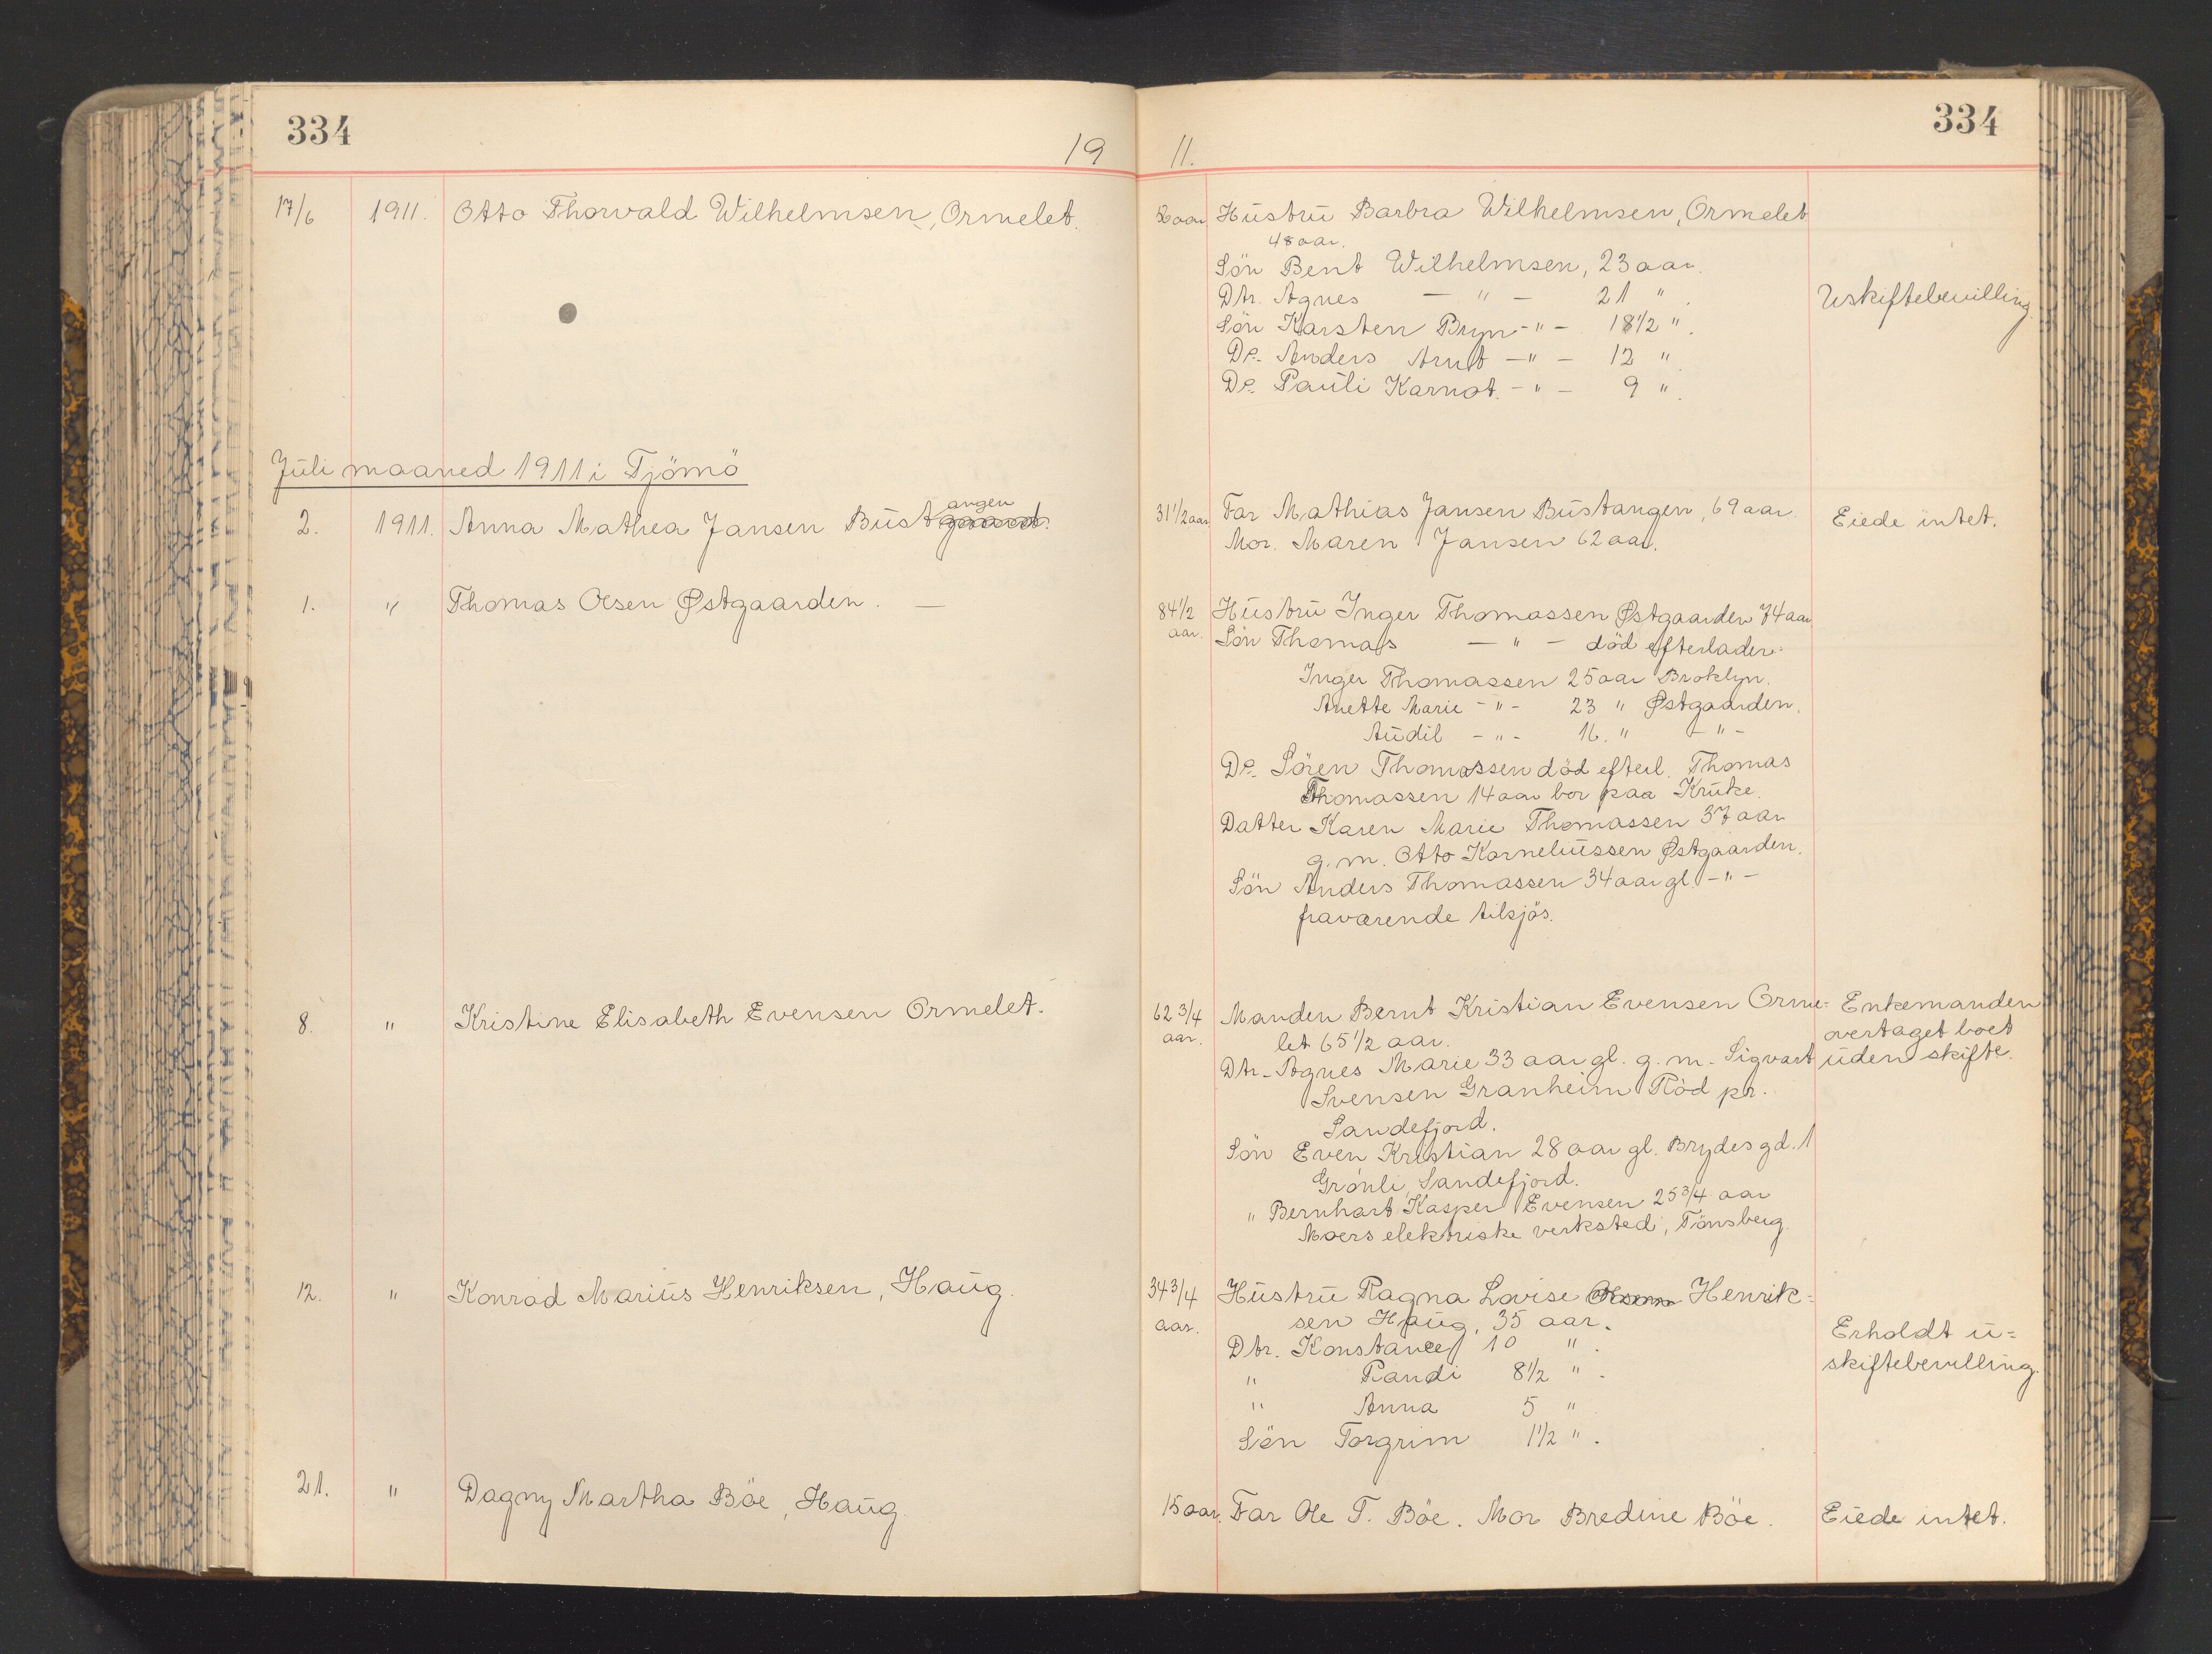 334
19 11.
334
17/6 1911. Otto Thorvald Wilhelmsen, Ormelet. 50 aar. Hustru Barbra Wilhelmsen, Ormelet
48 aar.
Sön Bent Wilhelmsen, 23 aar.
Dtr. Agnes — " — 21 ". Uskiftebevilling.
Sön Karsten Bryn - " - 18 1/2 ".
Do. Anders Arnt - " - 12 ".
Do. Pauli Karnot. - " - 9 ".
Juli maaned 1911 i Tjömö
2. 1911. Anna Mathea Jansen Bustangen 31 1/2 aar Far Mathias Jansen Bustangen, 69 aar. Eiede intet.
Mor. Maren Jansen 62 aar.
1. " Thomas Olsen Østgaarden. — 84 1/2 aar. Hustru Inger Thomassen Østgaarden 74 aar
Sön Thomas — " — död efterlader:
Inger Thomassen 25 aar Broklyn.
Anette Marie - " - 23 " Østgaarden.
Audil - " - 16. " - " -
Do. Sören Thomassen död efterl. Thomas
Thomassen 14 aar bor paa Kruke.
Datter Karen Marie Thomassen 37 aar
g. m. Otto Korneliussen Østgaarden.
Sön Anders Thomassen 34 aar gl. - " -
fraværende tilsjös.
8. " Kristine Elisabeth Evensen Ormelet. 62 3/4 aar. Manden Bernt Kristian Evensen Orme= Enkemanden
let 65 1/2 aar. overtaget boet
Dtr. Agnes Marie 33 aar gl. g. m. Sigvart uden skifte.
Svensen Granheim Röd pr.
Sandefjord.
Sön Even Kristian 28 aar gl. Brydes gd. 1
Grönli, Sandefjord.
" Bernhart Kasper Evensen 25 3/4 aar
Moers elektriske verksted, Tönsberg.
12. " Konrad Marius Henriksen, Haug. 34 3/4 aar. Hustru Ragna Lovise Olsen Henrik=
sen Haug, 35 aar. Erholdt u=
Dtr. Konstance 10 ". skiftebevilling.
" Randi 8 1/2 ".
" Anna 5 "
Sön Torgrim 1 1/2 ".
21. " Dagny Martha Böe, Haug. 15 aar. Far Ole T. Böe. Mor Bredine Böe. Eiede intet.